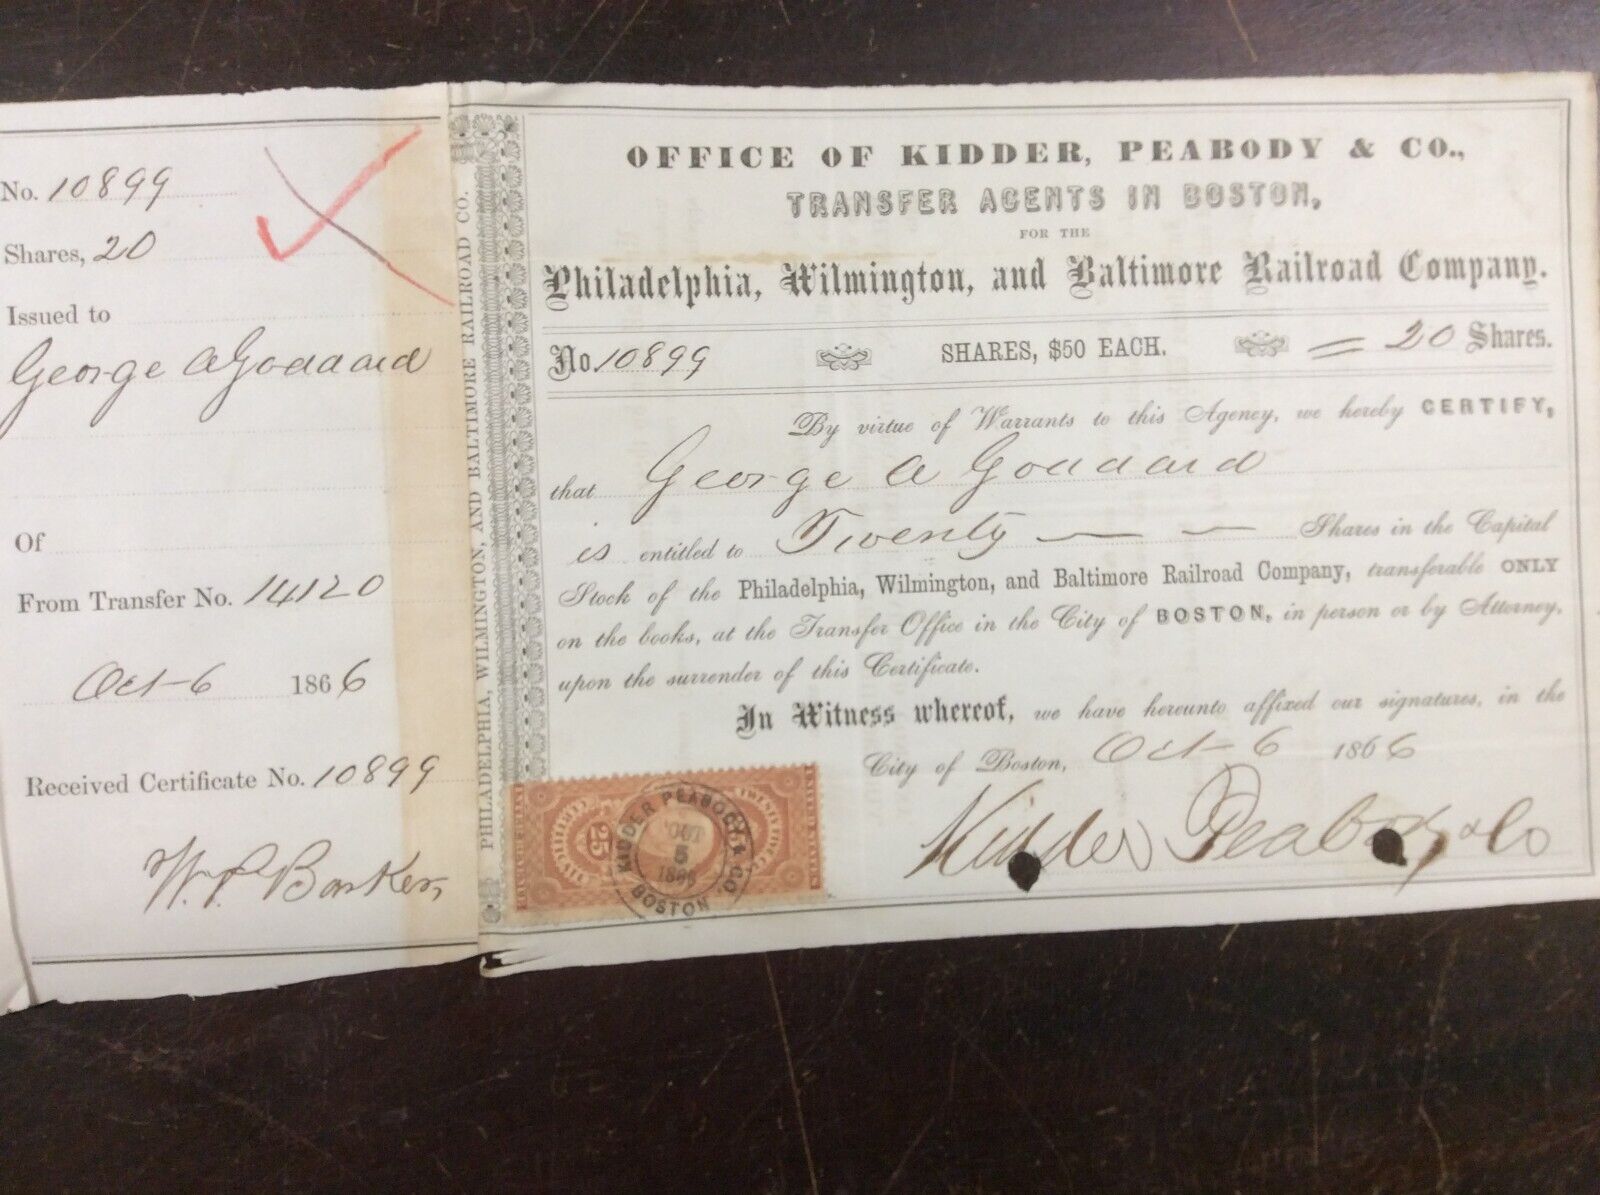 No. 10899
Shares, 20
Issued to
George A Goddard
Of
From Transfer No. 14120
Oct 6 1866
Received Certificate No. 10899
PHILADELPHIA, WILMINGTON, AND BALTIMORE RAILROAD CO.
OFFICE OF KIDDER, PEABODY & CO.,
TRANSFER AGENTS IN BOSTON,
FOR THE
Philadelphia, Wilmington, and Baltimore Railroad Company.
No. 10899 SHARES, $50 EACH. = 20 Shares.
By virtue of Warrants to this Agency, we hereby CERTIFY,
that George A Goddard
is entitled to Twenty — — Shares in the Capital
Stock of the Philadelphia, Wilmington, and Baltimore Railroad Company, transferable ONLY
on the books, at the Transfer Office in the City of BOSTON, in person or by Attorney,
upon the surrender of this Certificate.
In Witness whereof, we have hereunto affixed our signatures, in the
City of Boston, Oct 6 1866
Kidder Peabody & Co
25
KIDDER PEABODY & CO.
OCT
1866
BOSTON